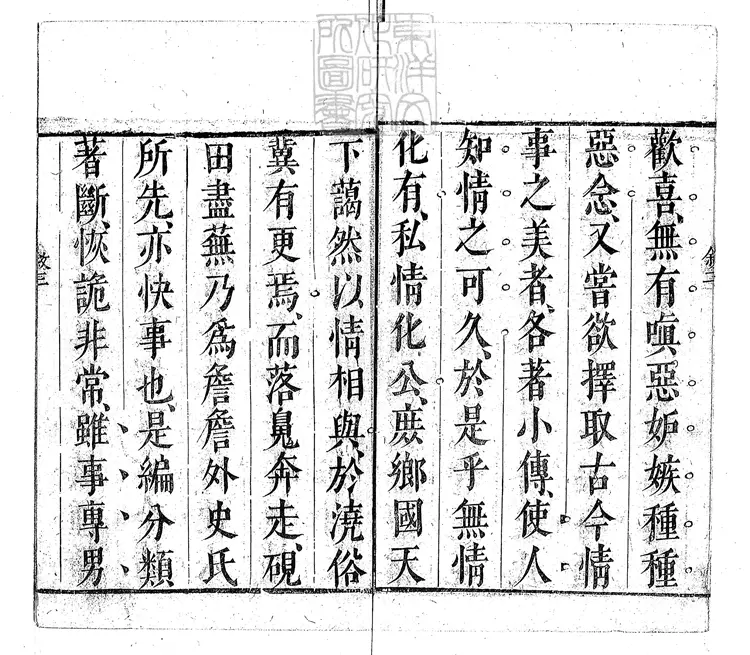 東洋文
化研究
所圖書
歡喜、無有嗔惡妬嫉種種
惡念、又嘗欲擇取古今情
事之美者、各著小傳、使人
知情之可久、於是乎無情
化有、私情化公、庶鄉國天
下藹然以情相與、於澆俗
冀有更焉、而落䰟奔走、硯
田盡蕪乃爲詹詹外史氏
所先、亦快事也、是編分類
著斷、恢詭非常、雖事專男
敘三